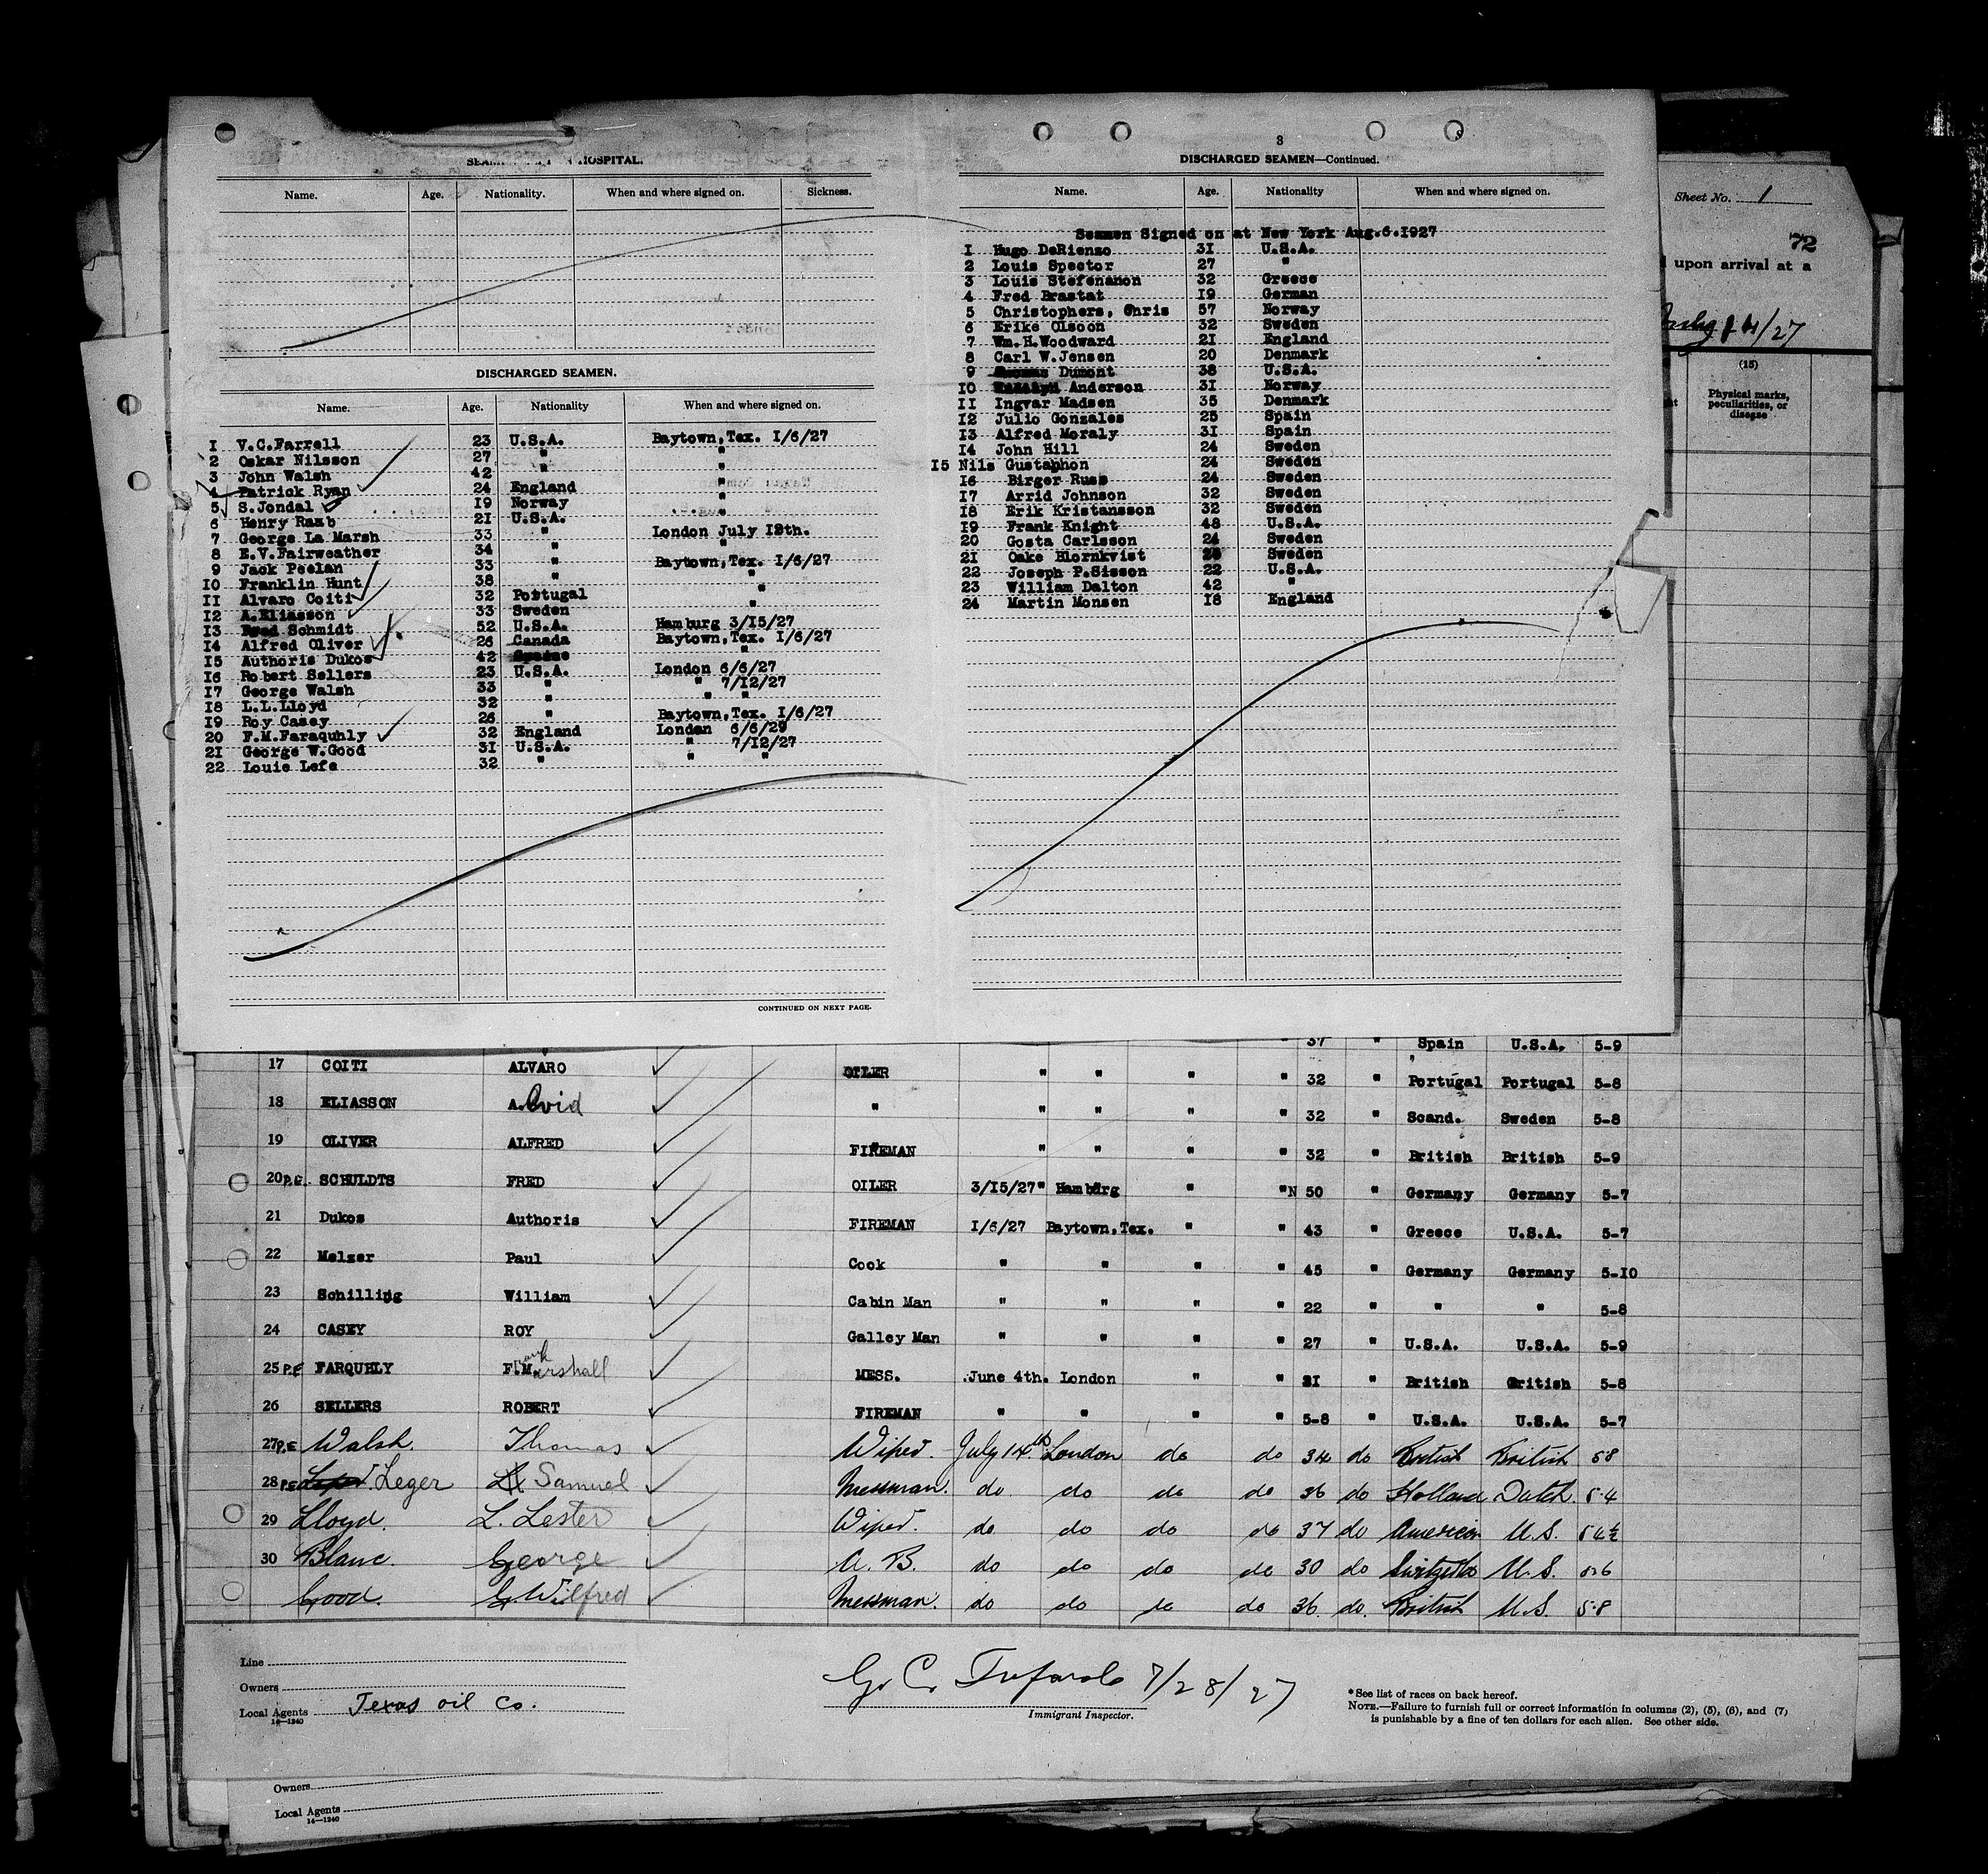 HOSPITAL.
Name. Age. Nationality. When and where signed on. Sickness.
DISCHARGED SEAMEN.
Name. Age. Nationality When and where signed on.
1 V.C.Farrell 23 U.S.A. Baytown,Tex. 1/6/27
2 Oskar Nilsson 27 " "
3 John Walsh 42 " "
4 Patrick Ryan 24 England "
5 S.Jondal 19 Norway "
6 Henry Raab 21 U.S.A. "
7 George La Marsh 33 " London July 12th.
8 E.V.Fairweather 34 " "
9 Jack Peelan 33 " Baytown,Tex. 1/6/27
10 Franklin Hunt 38 " "
11 Alvaro Coiti 32 Portugal "
12 A.Eliasson 33 Sweden "
13 Schmidt 52 U.S.A. Hamburg 3/15/27
14 Alfred Oliver 26 Canada Baytown,Tex. 1/6/27
15 Authoris Dukos 42 "
16 Robert Sellers 23 U.S.A. London 6/6/27
17 George Walsh 33 " " 7/12/27
18 L.L.Lloyd 32 " " "
19 Roy Casey 26 " Baytown,Tex. 1/6/27
20 F.M.Faraquhly 32 England London 6/6/29
21 George W.Good 31 U.S.A. " 7/12/27
22 Louie Lefe 32 " " "
CONTINUED ON NEXT PAGE.
3
DISCHARGED SEAMEN—Continued.
Name. Age. Nationality When and where signed on.
Seamen Signed on at New York Aug.6.1927
1 Hugo DeRienzo 31 U.S.A.
2 Louis Spector 27 "
3 Louis Stefenanon 32 Greece
4 Fred Brastat 19 German
5 Christophers, Chris 57 Norway
6 Erike Olsoon 32 Sweden
7 Wm.H.Woodward 21 England
8 Carl W.Jensen 20 Denmark
9 Dumont 38 U.S.A.
10 Anderson 31 Norway
11 Ingvar Madsen 35 Denmark
12 Julio Gonzales 25 Spain
13 Alfred Moraly 31 Spain
14 John Hill 24 Sweden
15 Nils Gustaphon 24 Sweden
16 Birger Russ 24 Sweden
17 Arrid Johnson 32 Sweden
18 Erik Kristansson 32 Sweden
19 Frank Knight 48 U.S.A.
20 Gosta Carlsson 24 Sweden
21 Oake Blornkvist Sweden
22 Joseph P.Sisson 22 U.S.A.
23 William Dalton 42 "
24 Martin Monsen 18 England
Sheet No. 1
72
upon arrival at a
/27
(15)
Physical marks,
peculiarities, or
disease
37 " Spain U.S.A. 5-9
17 COITI ALVARO OILER " " " " 32 " Portugal Portugal 5-8
18 ELIASSON A. " " " " " 32 " Scand. Sweden 5-8
19 OLIVER ALFRED FIREMAN " " " " 32 " British British 5-9
20 P.E. SCHULDTS FRED OILER 3/15/27" Hamburg " "N 50 " Germany Germany 5-7
21 Dukos Authoris FIREMAN 1/6/27 Baytown,Tex. " " 43 " Greece U.S.A. 5-7
22 Melzer Paul Cook " " " " 45 " Germany Germany 5-10
23 Schilling William Cabin Man " " " " 22 " " " 5-8
24 CASEY ROY Galley Man " " " " 27 " U.S.A. U.S.A. 5-9
25 P.E FARQUHLY Frank Marshall MESS. June 4th. London " " 31 " British British 5-8
26 SELLERS ROBERT FIREMAN " " " " 5-8 " U.S.A. U.S.A. 5-7
27 P.E Walsh. Thomas Wiper. July 14th London do do 34 do British British 5 8
28 P.E Leger Samuel Messman. do do do do 36 do Holland Dutch. 5 4
29 Lloyd. L. Lester Wiper. do do do do 37 do American U.S. 5 4½
30 Blanc. George A. B. do do do do 30 do U.S. 5 6
Good. G. Wilfred Messman. do do do do 36. do. British U.S. 5 8
Line
Owners
Local Agents Texas oil Co.
14—1240
7/28/27
Immigrant Inspector.
*See list of races on back hereof.
NOTE.—Failure to furnish full or correct information in columns (2), (5), (6), and (7)
is punishable by a fine of ten dollars for each alien. See other side.
Owners
Local Agents
14—1240